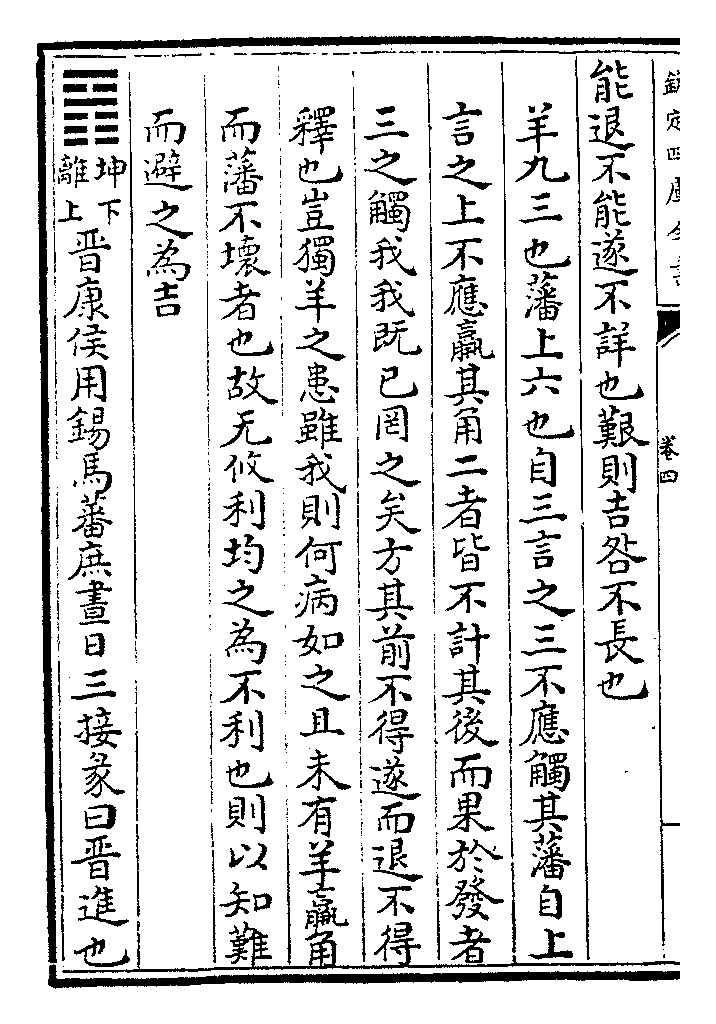 欽定四庫全書
卷四
能退不能遂不詳也艱則吉咎不長也
羊九三也藩上六也自三言之三不應觸其藩自上
言之上不應羸其角二者皆不計其後而果於發者
三之觸我我既已罔之矣方其前不得遂而退不得
釋也豈獨羊之患雖我則何病如之且未有羊羸角
而藩不壞者也故无攸利均之為不利也則以知難
而避之為吉
䷢坤下離上晉康侯用錫馬蕃庶晝日三接彖曰晉進也